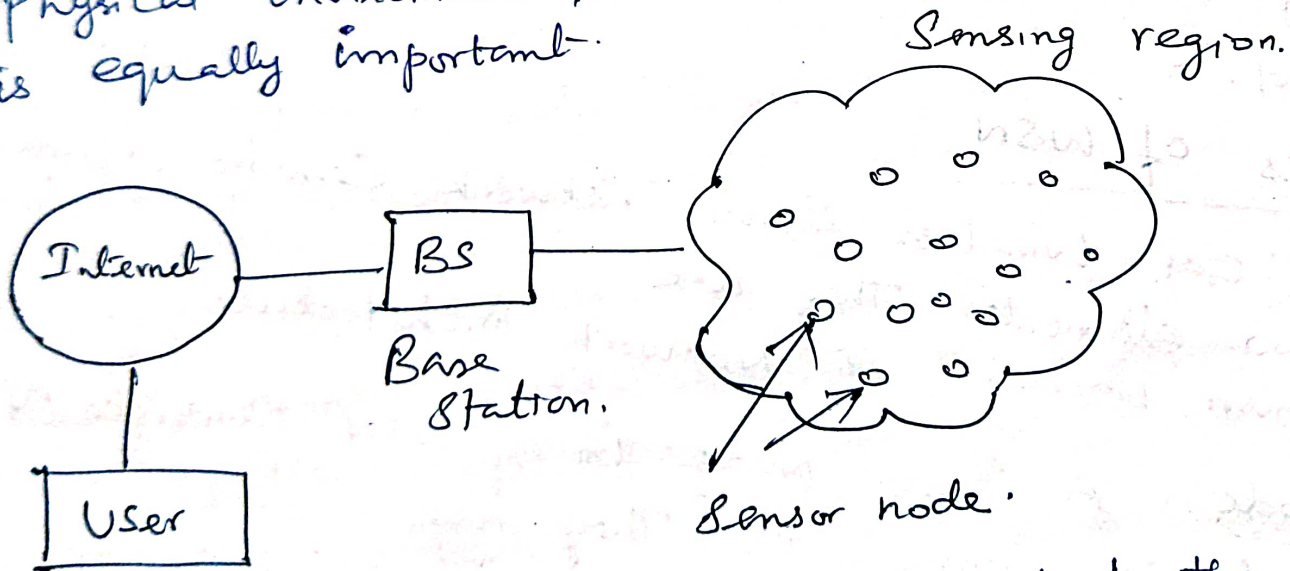 Physical
is equally important.
Sensing region.
Internet
BS
Base
Station.
User
Sensor node.